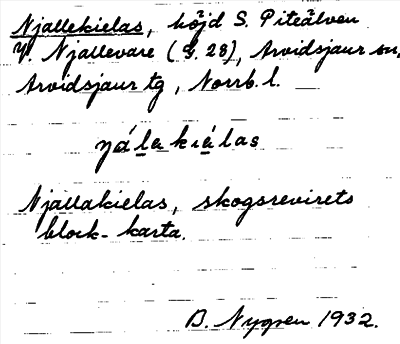 Njallekielas, höjd S. Piteälven
V. Njallevare (S. 28), Arvidsjaur sn,
Arvidsjaur tg, Norrb. l. —
ŋálakiálas
Njallakielas, skogsrevirets
block-karta.
B. Nygren 1932.